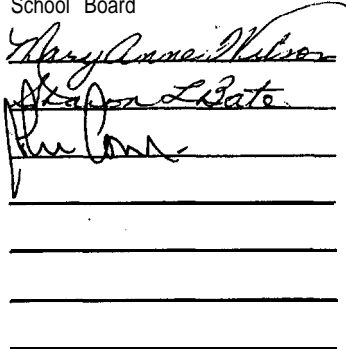 School Board
Mary Anne Wilson
Sharon L Bate